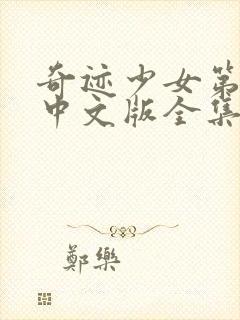 奇迹少女第
中文版全集
鄭樂